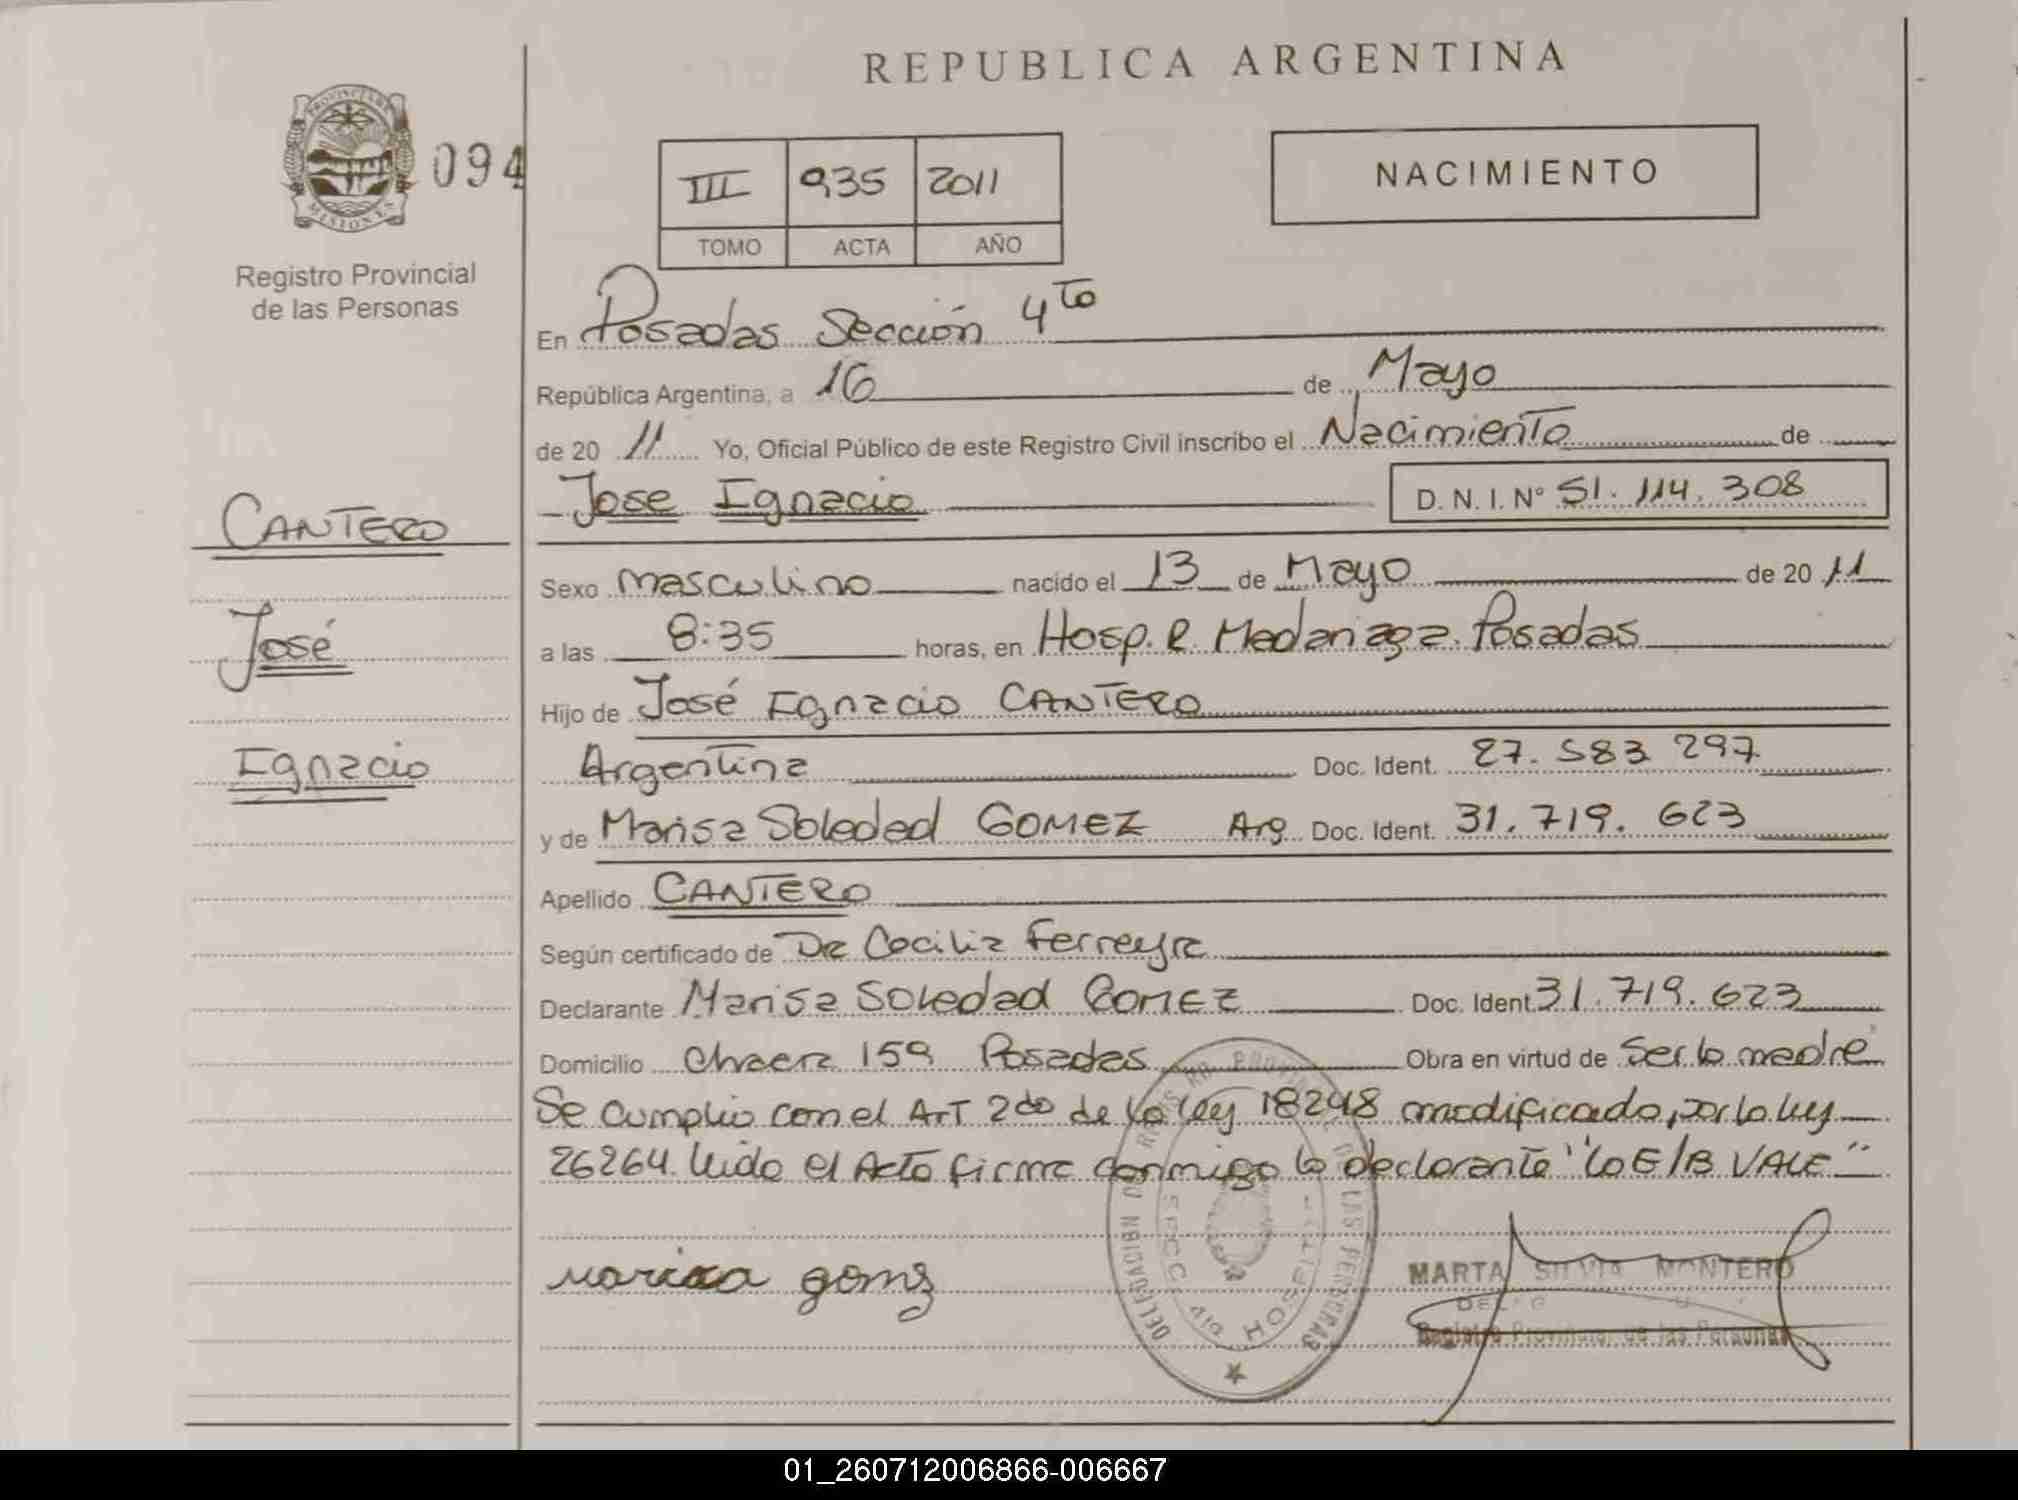 REPUBLICA ARGENTINA
PROVINCIA DE
MISIONES
094
Registro Provincial
de las Personas
III 935 2011
TOMO ACTA AÑO
NACIMIENTO
En Posadas Sección 4to
República Argentina, a 16 de Mayo
de 20 11 Yo, Oficial Público de este Registro Civil inscribo el Nacimiento de
Jose Ignacio D. N. I. N° 51. 114. 308
CANTERO
José
Ignacio
Sexo masculino nacido el 13 de Mayo de 20 11
a las 8:35 horas, en Hosp. R. Madariaga. Posadas
Hijo de José Ignacio CANTERO
Argentina Doc. Ident. 27. 583 297
y de Marisa Soledad GOMEZ Arg Doc. Ident. 31. 719. 623
Apellido CANTERO
Según certificado de Dra Cecilia Ferreyra
Declarante Marisa Soledad GOMEZ Doc. Ident. 31. 719. 623
Domicilio Chacra 159 Posadas Obra en virtud de Ser la madre
Se cumplio con el ArT 2do de la ley 18248 modificado, por la ley
26264. leida el Acta firma conmigo la declarante "Lo E/B VALE"
marisa gomz
MARTA SILVIA MONTERO
Registro Provincial de las Personas
DELEGACION
SECC 4ta HOSPITAL
01_260712006866-006667